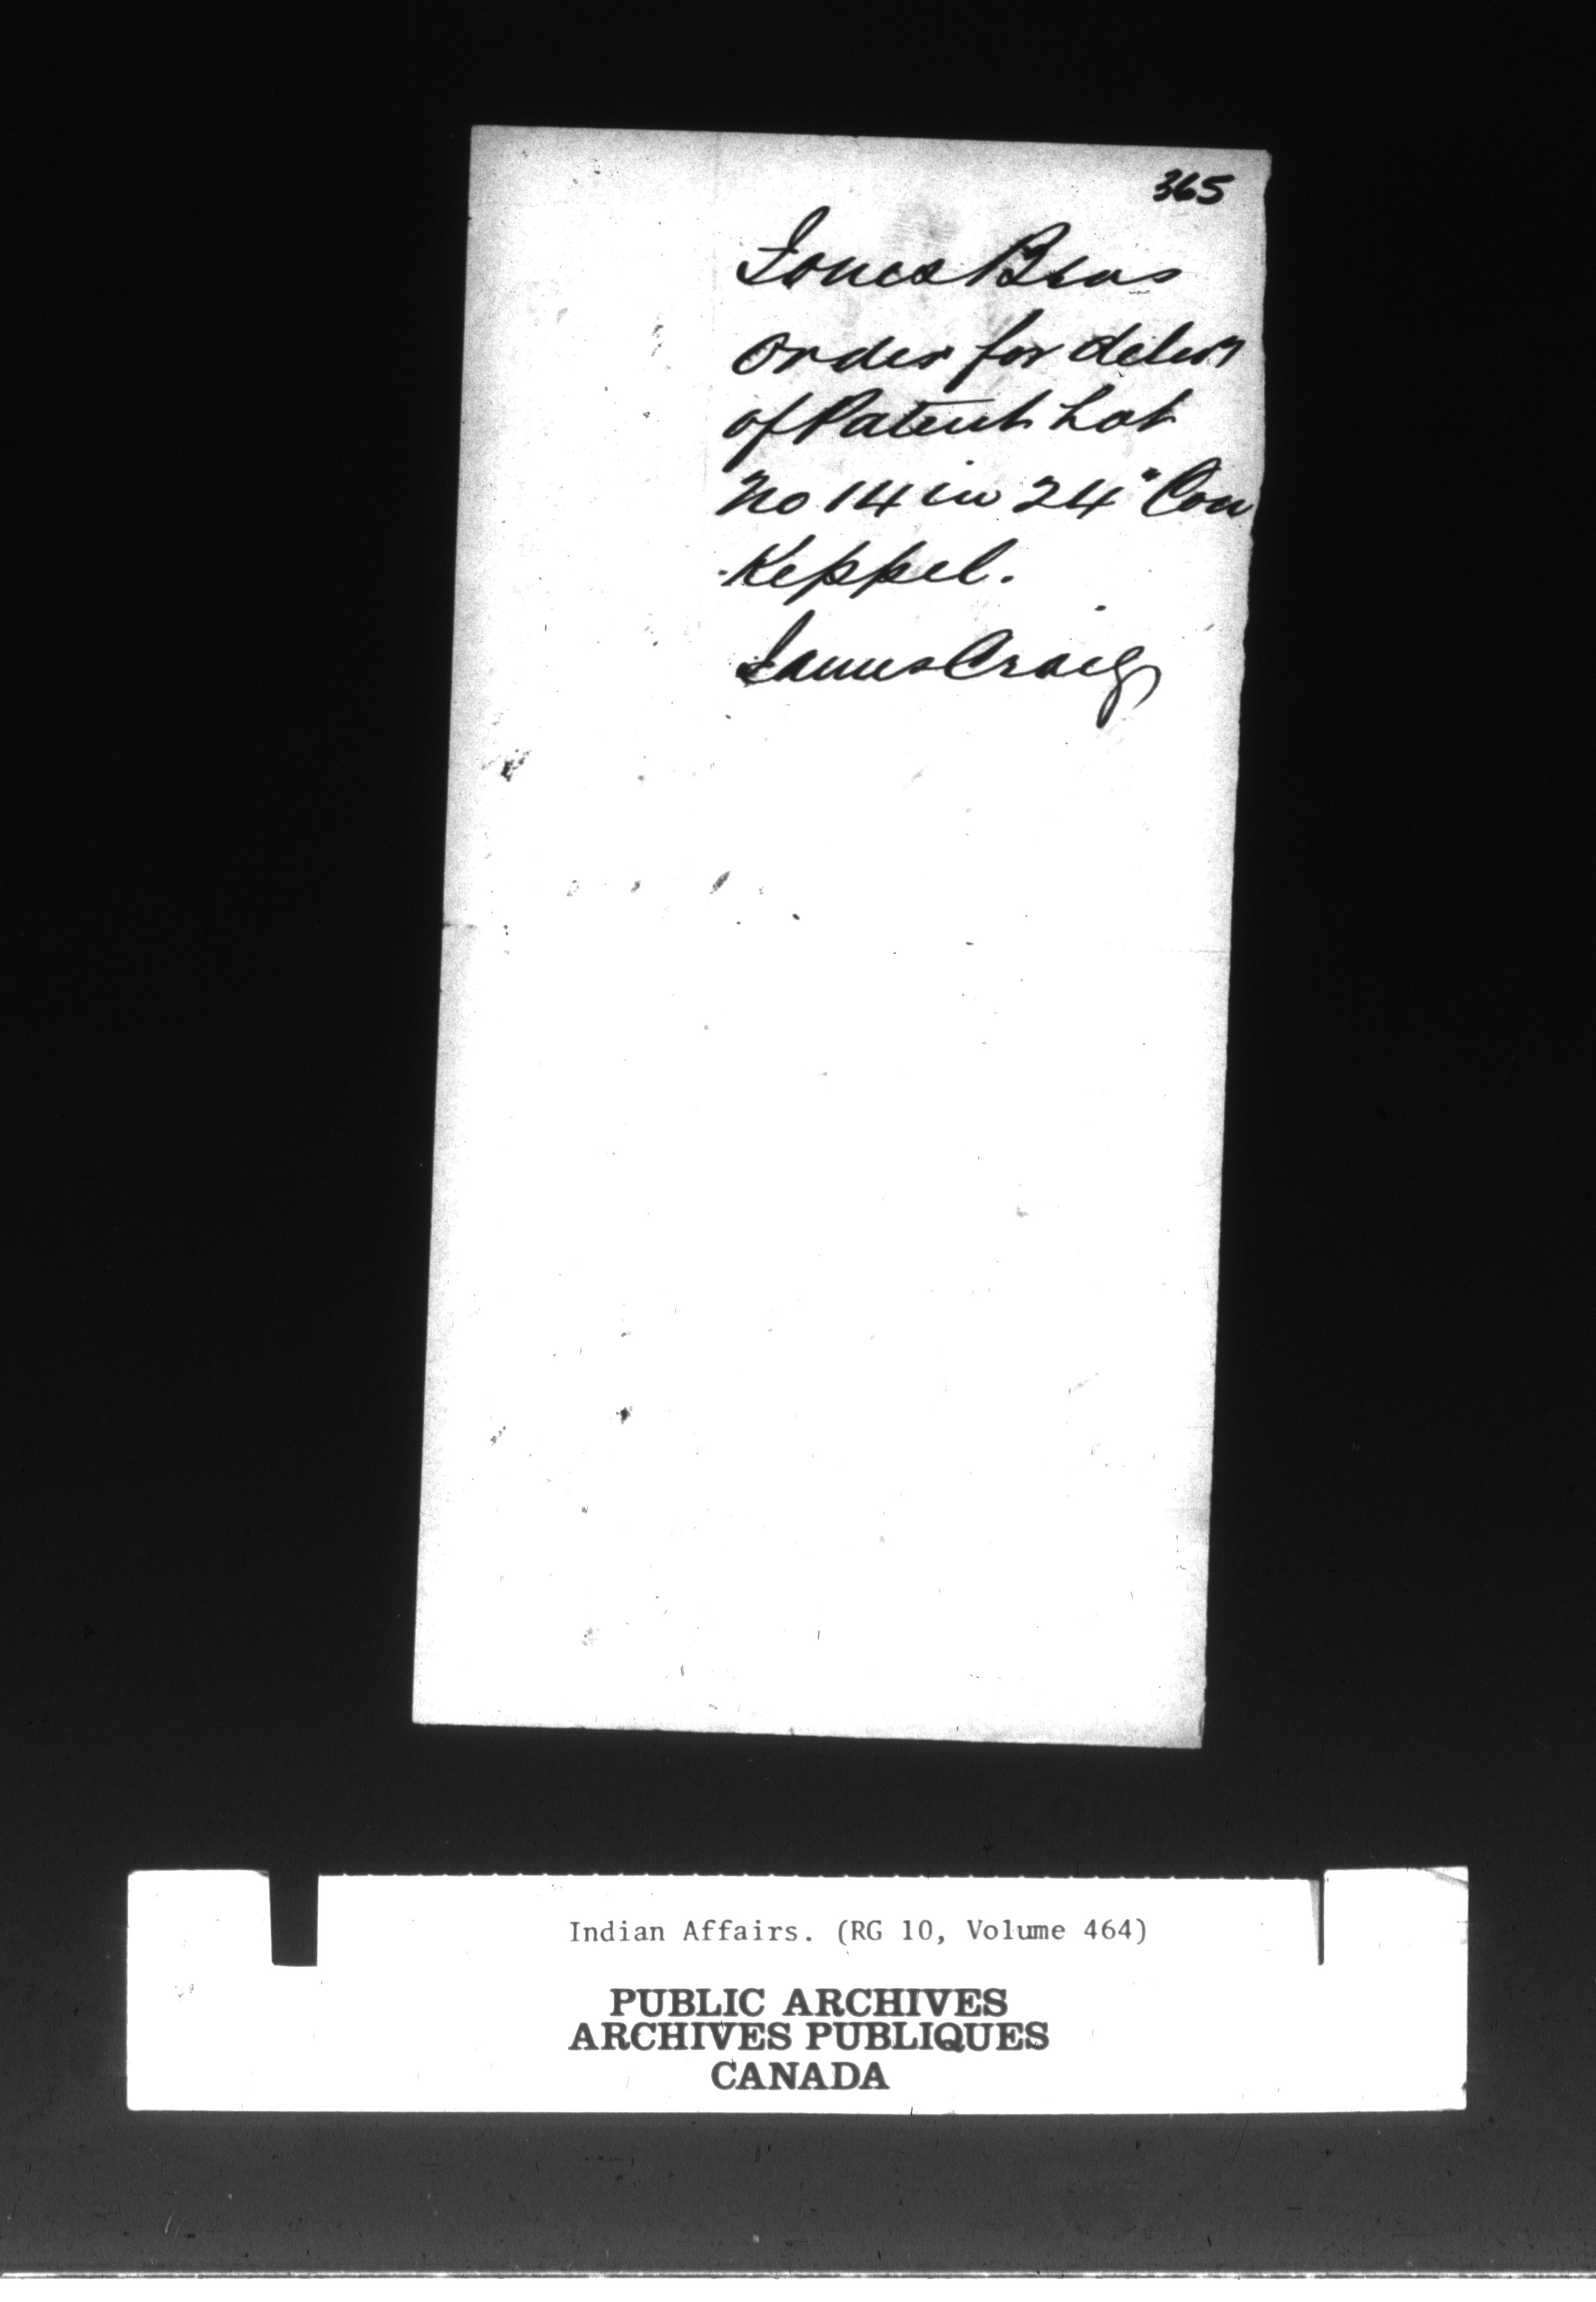 365
Jones Bros
Order for delivy
of Patent Lot
No 14 in 24" Con
Keppel.
James Craig
Indian Affairs. (RG 10, Volume 464)
PUBLIC ARCHIVES
ARCHIVES PUBLIQUES
CANADA